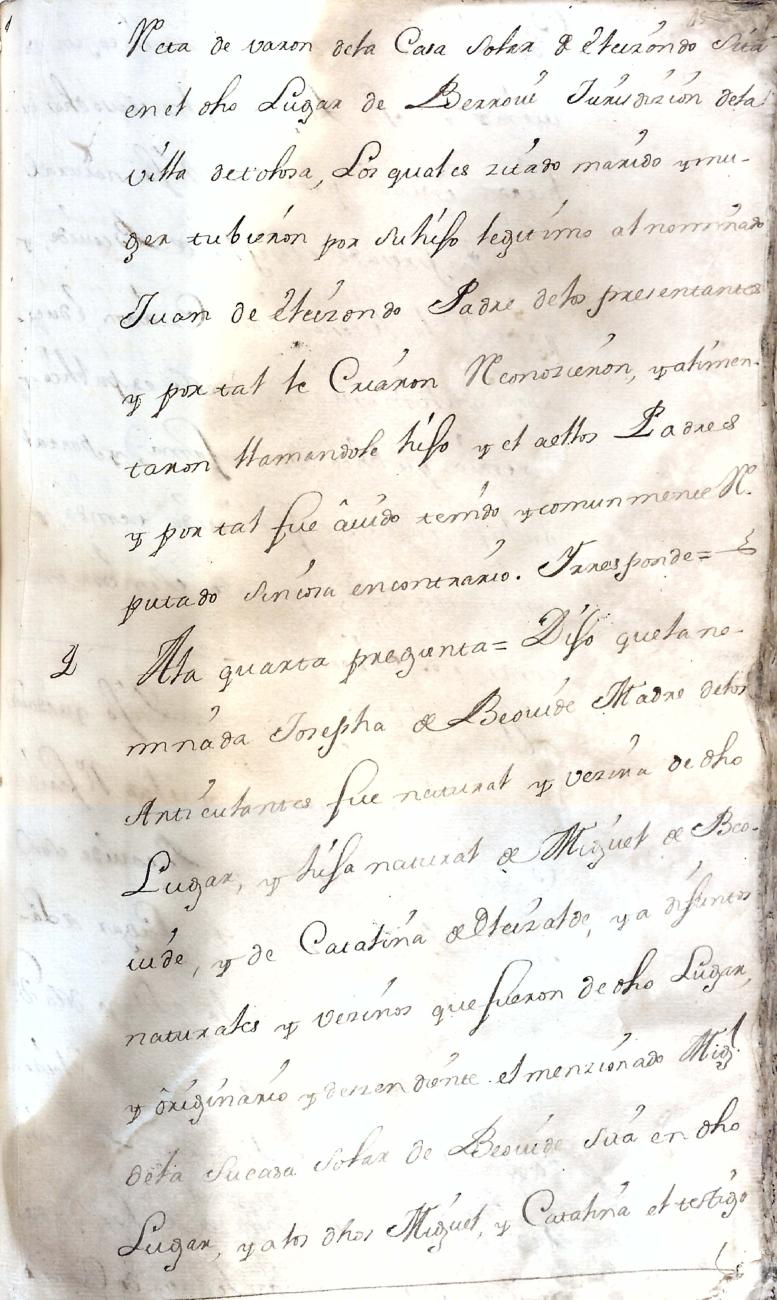 Neta de varon dela Casa Solar de Eleizondo Sita
en el dho Lugar de Berrovi Jurisdizion dela
villa detolosa, Los quales zitado marido y mu-
ger tubieron por su hijo legitimo al nominado
Juan de Eleizondo Padre delos presentantes
y por tal le Criaron Reconozieron, y alimen-
taron llamandole hijo y el aellos Padres
y por tal fue avido tenido y comunmente Re-
putado sin cosa encontrario. Yrresponde=
4 Ala quarta pregunta= Dijo quela no-
minada Josepha de Beovide Madre delos
Articulantes fue natural y vezina de dho
Lugar, y hija natural de Miguel de Beo-
vide, y de Catalina de Oleizalde, ya difuntos
naturales y vezinos que fueron de dho Lugar,
y originario y deszendiente el menzionado Migl
dela su casa Solar de Beovide Sita en dho
Lugar, y alos dhos Miguel, y Catalina el testigo